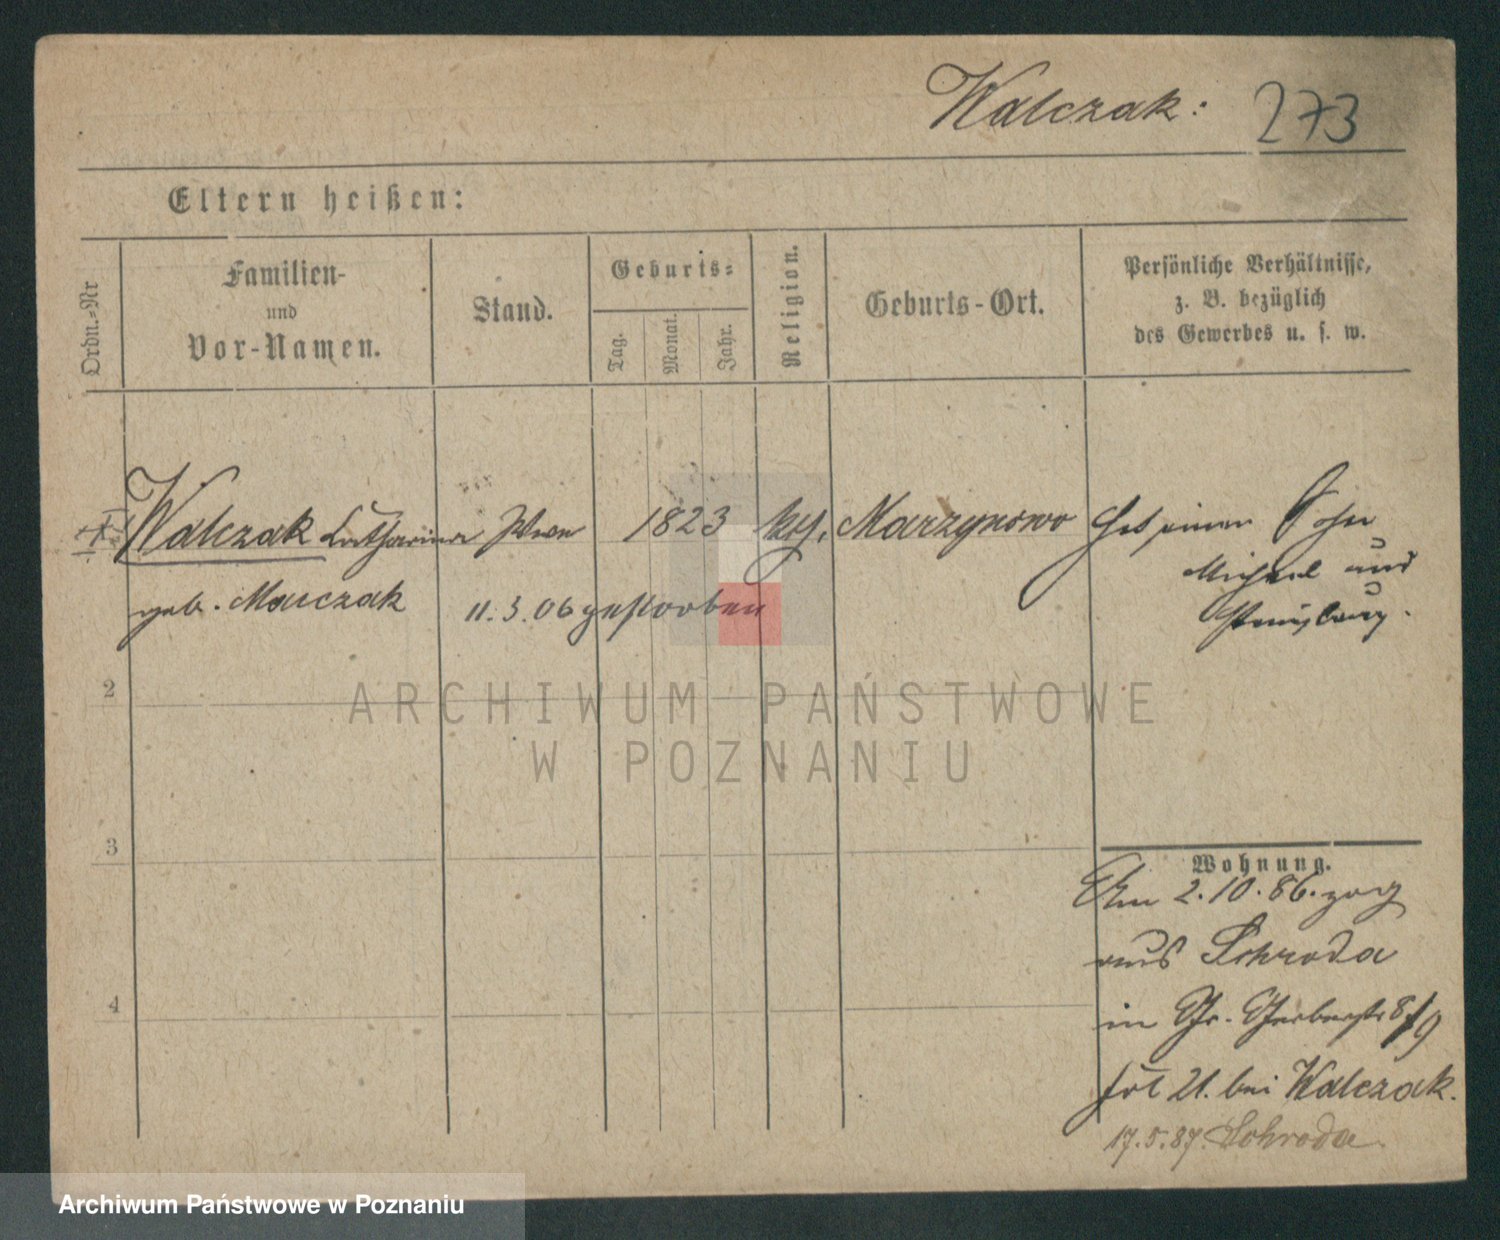 Walczak: 273
Eltern heißen:
Ordn.-Nr
Familien-
und
Vor-Namen.
Stand.
Geburts-
Tag.
Monat.
Jahr.
Religion.
Geburts-Ort.
Persönliche Verhältnisse,
z. B. bezüglich
des Gewerbes u. s. w.
Walczak Catharina Wwe 1823 kth. Marzynowo
geb. Marczak 11.3.06 gestorben
Hat einen Sohn
Michael und
Stanislaus.
2
3
4
Wohnung.
Am 2.10.86. zog
aus Schroda
in Gr. Gerberstr 8/9
Hof 21. bei Walczak.
17.5.87. Schroda.
ARCHIWUM PAŃSTWOWE
W POZNANIU
Archiwum Państwowe w Poznaniu